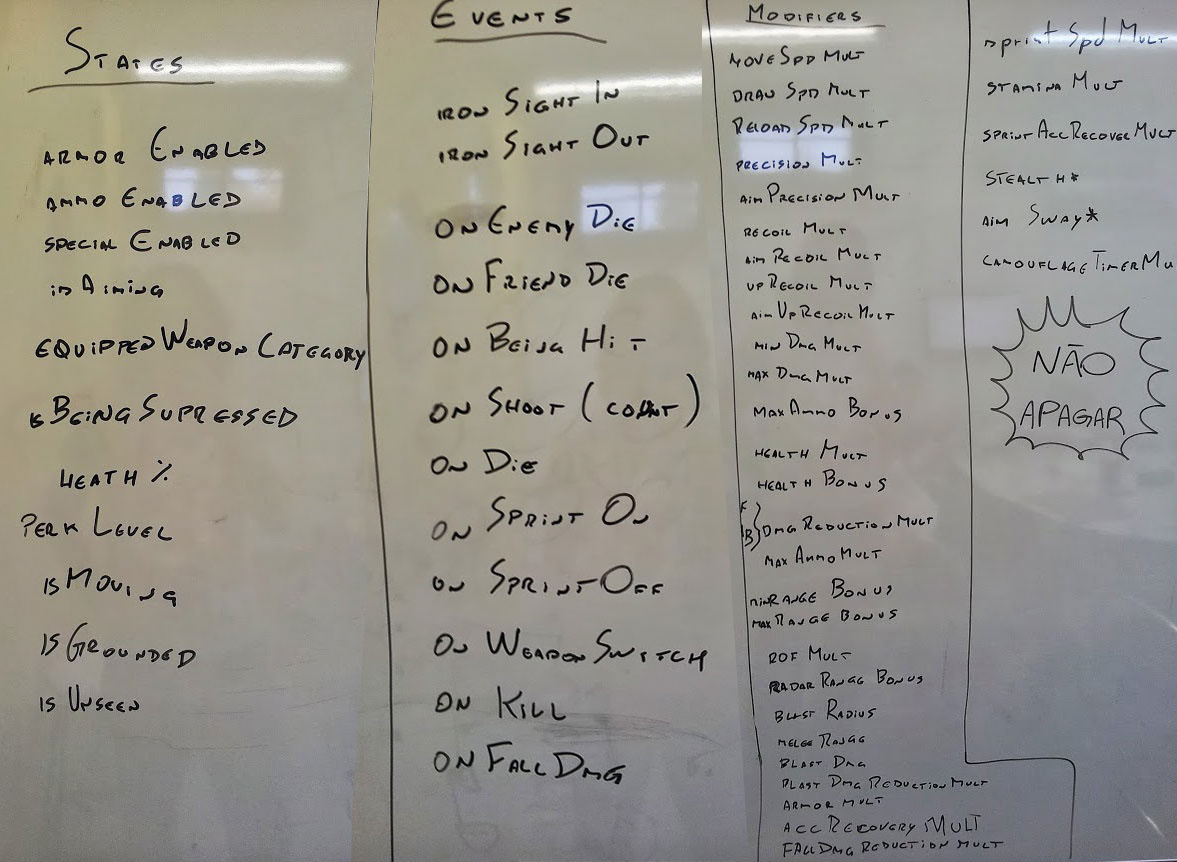 STATES
ARMOR ENABLED
AMMO ENABLED
SPECIAL ENABLED
is Aiming
EQUIPPED WEAPON CATEGORY
is BEING SUPRESSED
HEATH %
PERK LEVEL
IS MOVING
IS GROUNDED
IS UNSEEN
EVENTS
IRON SIGHT IN
IRON SIGHT OUT
ON ENEMY DIE
ON FRIEND DIE
ON BEING HIT
ON SHOOT (COUNT)
ON DIE
ON SPRINT ON
ON SPRINT OFF
ON WEAPON SWITCH
ON KILL
ON FALL DMG
MODIFIERS
MOVE SPD MULT
DRAW SPD MULT
RELOAD SPD MULT
PRECISION MULT
AIM PRECISION MULT
RECOIL MULT
AIM RECOIL MULT
UP RECOIL MULT
AIM UP RECOIL MULT
MIN DMG MULT
MAX DMG MULT
MAX AMMO BONUS
HEALTH MULT
HEALTH BONUS
F
B } DMG REDUCTION MULT
MAX AMMO MULT
MIN RANGE BONUS
MAX RANGE BONUS
ROF MULT
RADAR RANGE BONUS
BLAST RADIUS
MELEE RANGE
BLAST DMG
BLAST DMG REDUCTION MULT
ARMOR MULT
ACC RECOVERY MULT
FALL DMG REDUCTION MULT
sprint Spd MULT
STAMINA MULT
SPRINT ACC RECOVER MULT
STEALTH*
AIM SWAY*
CAMOUFLAGE TIMER MU
NÃO
APAGAR